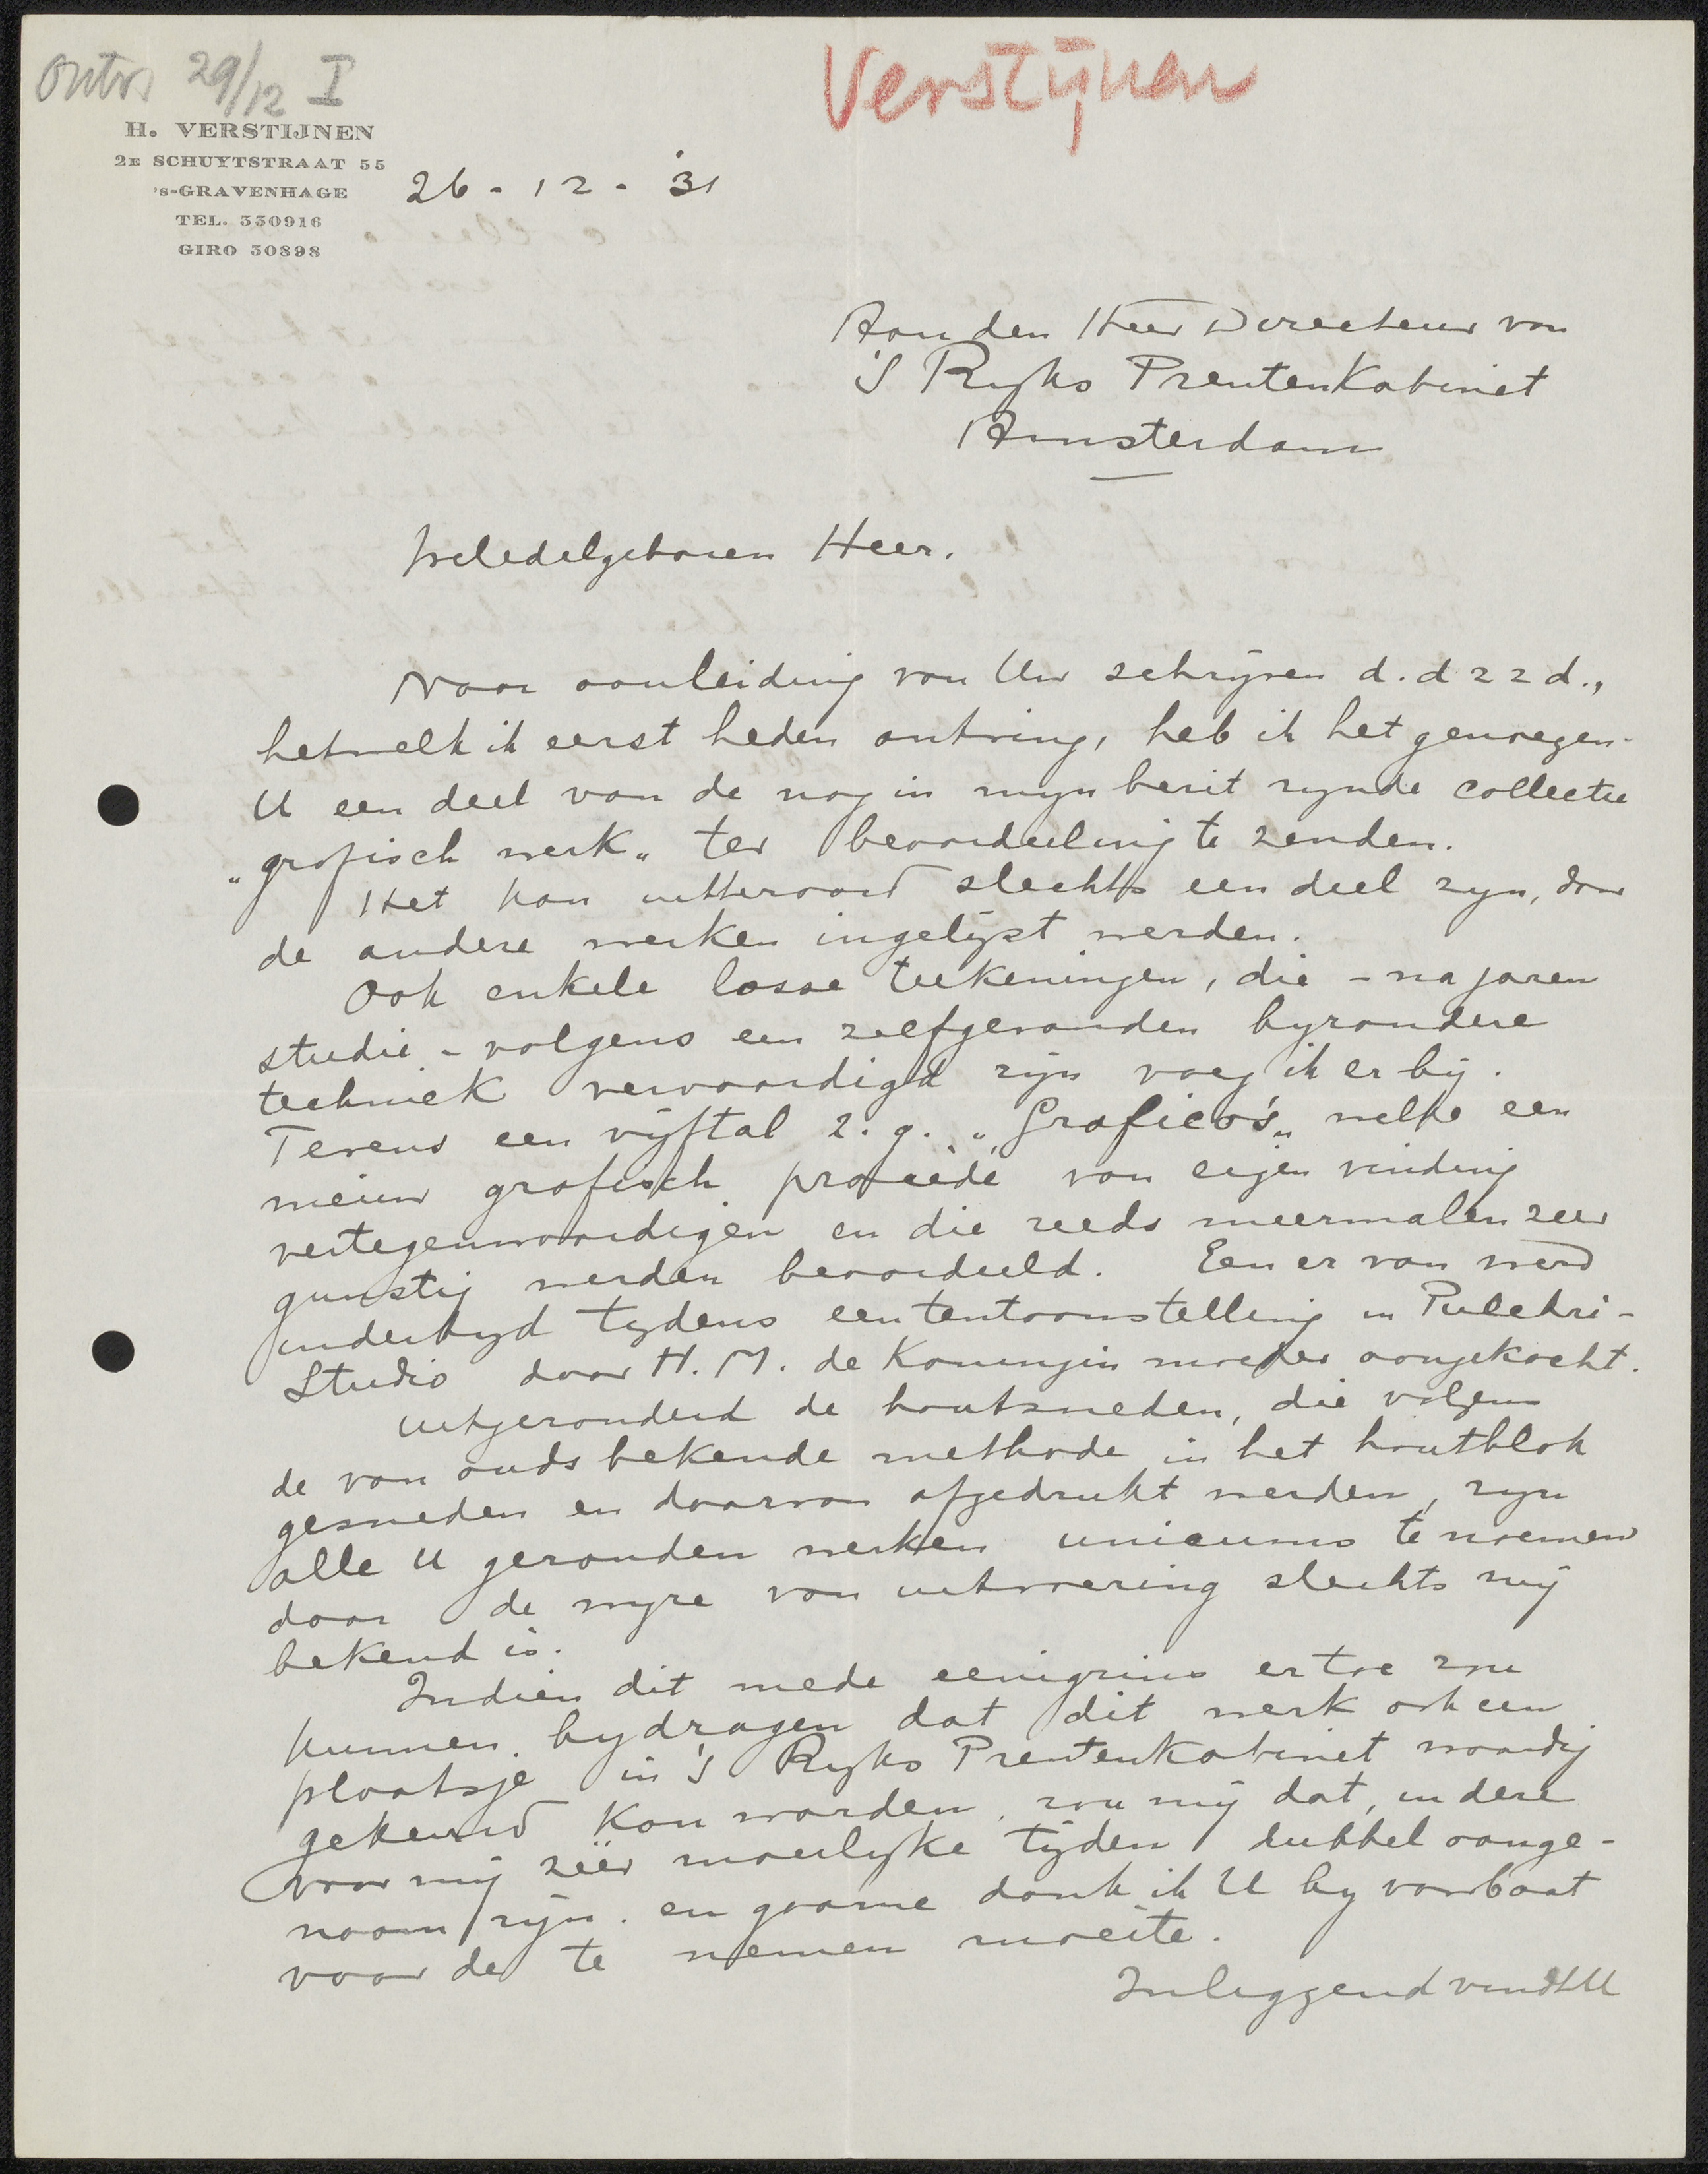 Ontv. 29/12 I
Verstijnen
H. VERSTIJNEN
2E SCHUYTSTRAAT 55
's-GRAVENHAGE
TEL. 330916
GIRO 50898
26 - 12 - '31
Aan den Heer Directeur van
'S Ryks PrentenKabinet
Amsterdam
Weledelgeboren Heer.
Naar aanleiding van Uw schrijven d.d 22 d.,
hetwelk ik eerst heden ontving, heb ik het genoegen
U een deel van de nog in mijn bezit zynde collectie
„grafisch werk„ ter beoordeeling te zenden.
Het kan uitteraard slechts een deel zyn, daar
de andere werken ingelijst werden.
Ook enkele losse teekeningen, die - na jaren
studie - volgens een zelfgevonden byzondere
techniek vervaardigd zijn voeg ik er bij.
Tevens een vijftal z.g. „Grafico's„ welke een
nieuw grafisch procédé van eigen vinding
vertegenwoordigen en die reeds meermalen zeer
gunstig werden beoordeeld. Een er van werd
indertyd tydens een tentoonstelling in Pulchri-
Studio door H.M. de Koningin moeder aangekocht.
Uitgezonderd de houtsneden, die volgens
de van ouds bekende methode in het houtblok
gesneden en daarvan afgedrukt werden, zyn
alle U gezonden werken unicums te noemen
daar de wyze van uitvoering slechts mij
bekend is.
Indien dit mede eenigzins er toe zou
kunnen bydragen dat dit werk ook een
plaatsje in 's Ryks PrentenKabinet waardig
gekeurd kan worden, zou mij dat, in deze
voor mij zéér moeilyke tijden dubbel aange-
naam zijn. en gaarne dank ik U by voorbaat
voor de te nemen moeite.
Inliggend vindt U